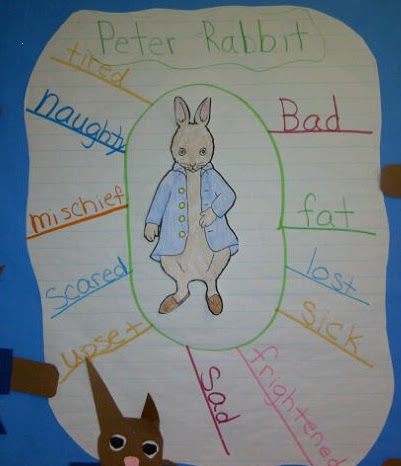 Peter Rabbit
tired
naughty
mischief
scared
upset
Bad
fat
lost
sick
frightened
sad